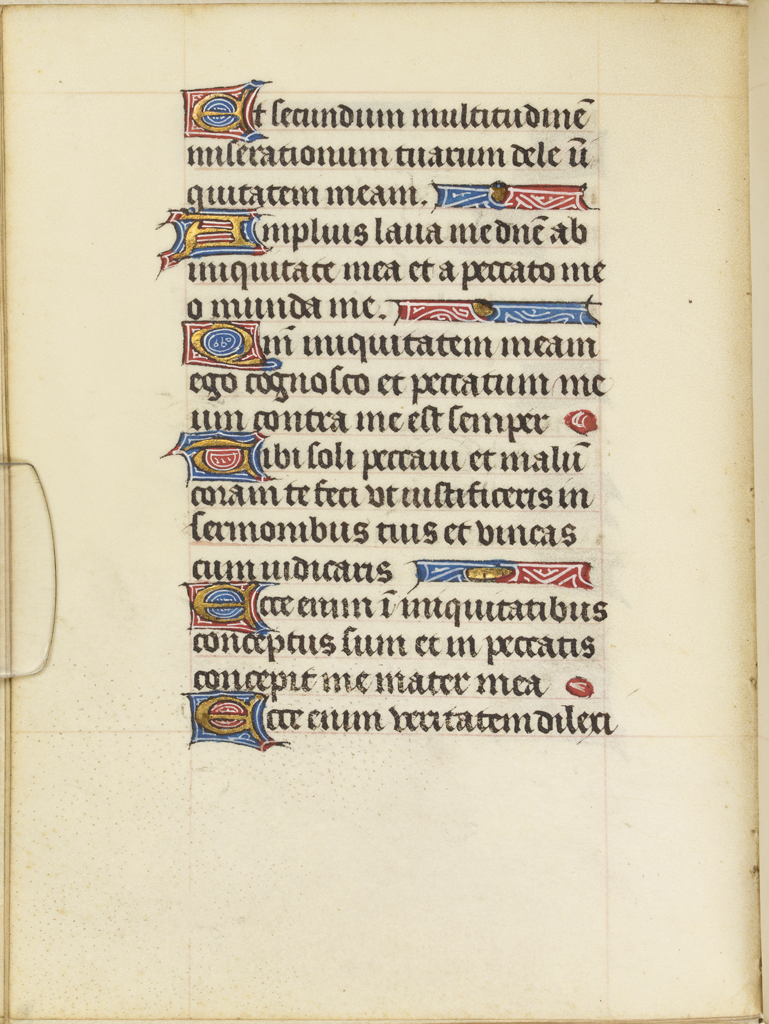 Et secundum multitudinē
miserationum tuarum dele ī
quitatem meam.
Amplius laua me dnē ab
iniquitate mea et a peccato me
o munda me.
Qm̄ iniquitatem meam
ego cognosco et peccatum me
um contra me est semper
Tibi soli peccaui et malū
coram te feci vt iustificeris in
sermonibus tuis et vincas
cum iudicaris
Ecce enim ī iniquitatibus
conceptus sum et in peccatis
concepit me mater mea
Ecce enim veritatem dilexi